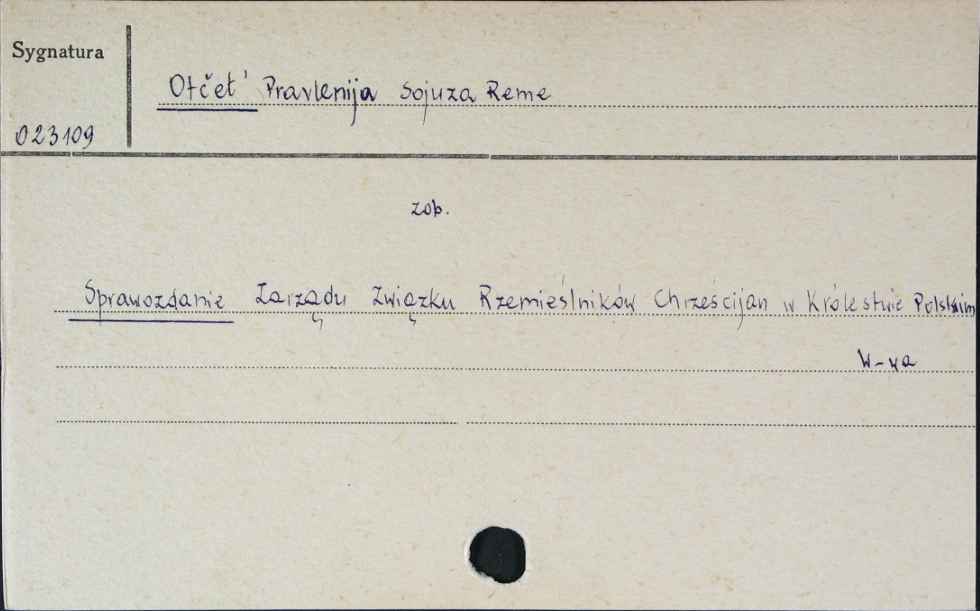 Sygnatura
Otčet' Pravlenija Sojuza Reme
023109
zob.
Sprawozdanie Zarządu Związku Rzemieślników Chrześcijan w Królestwie Polskim
W-wa